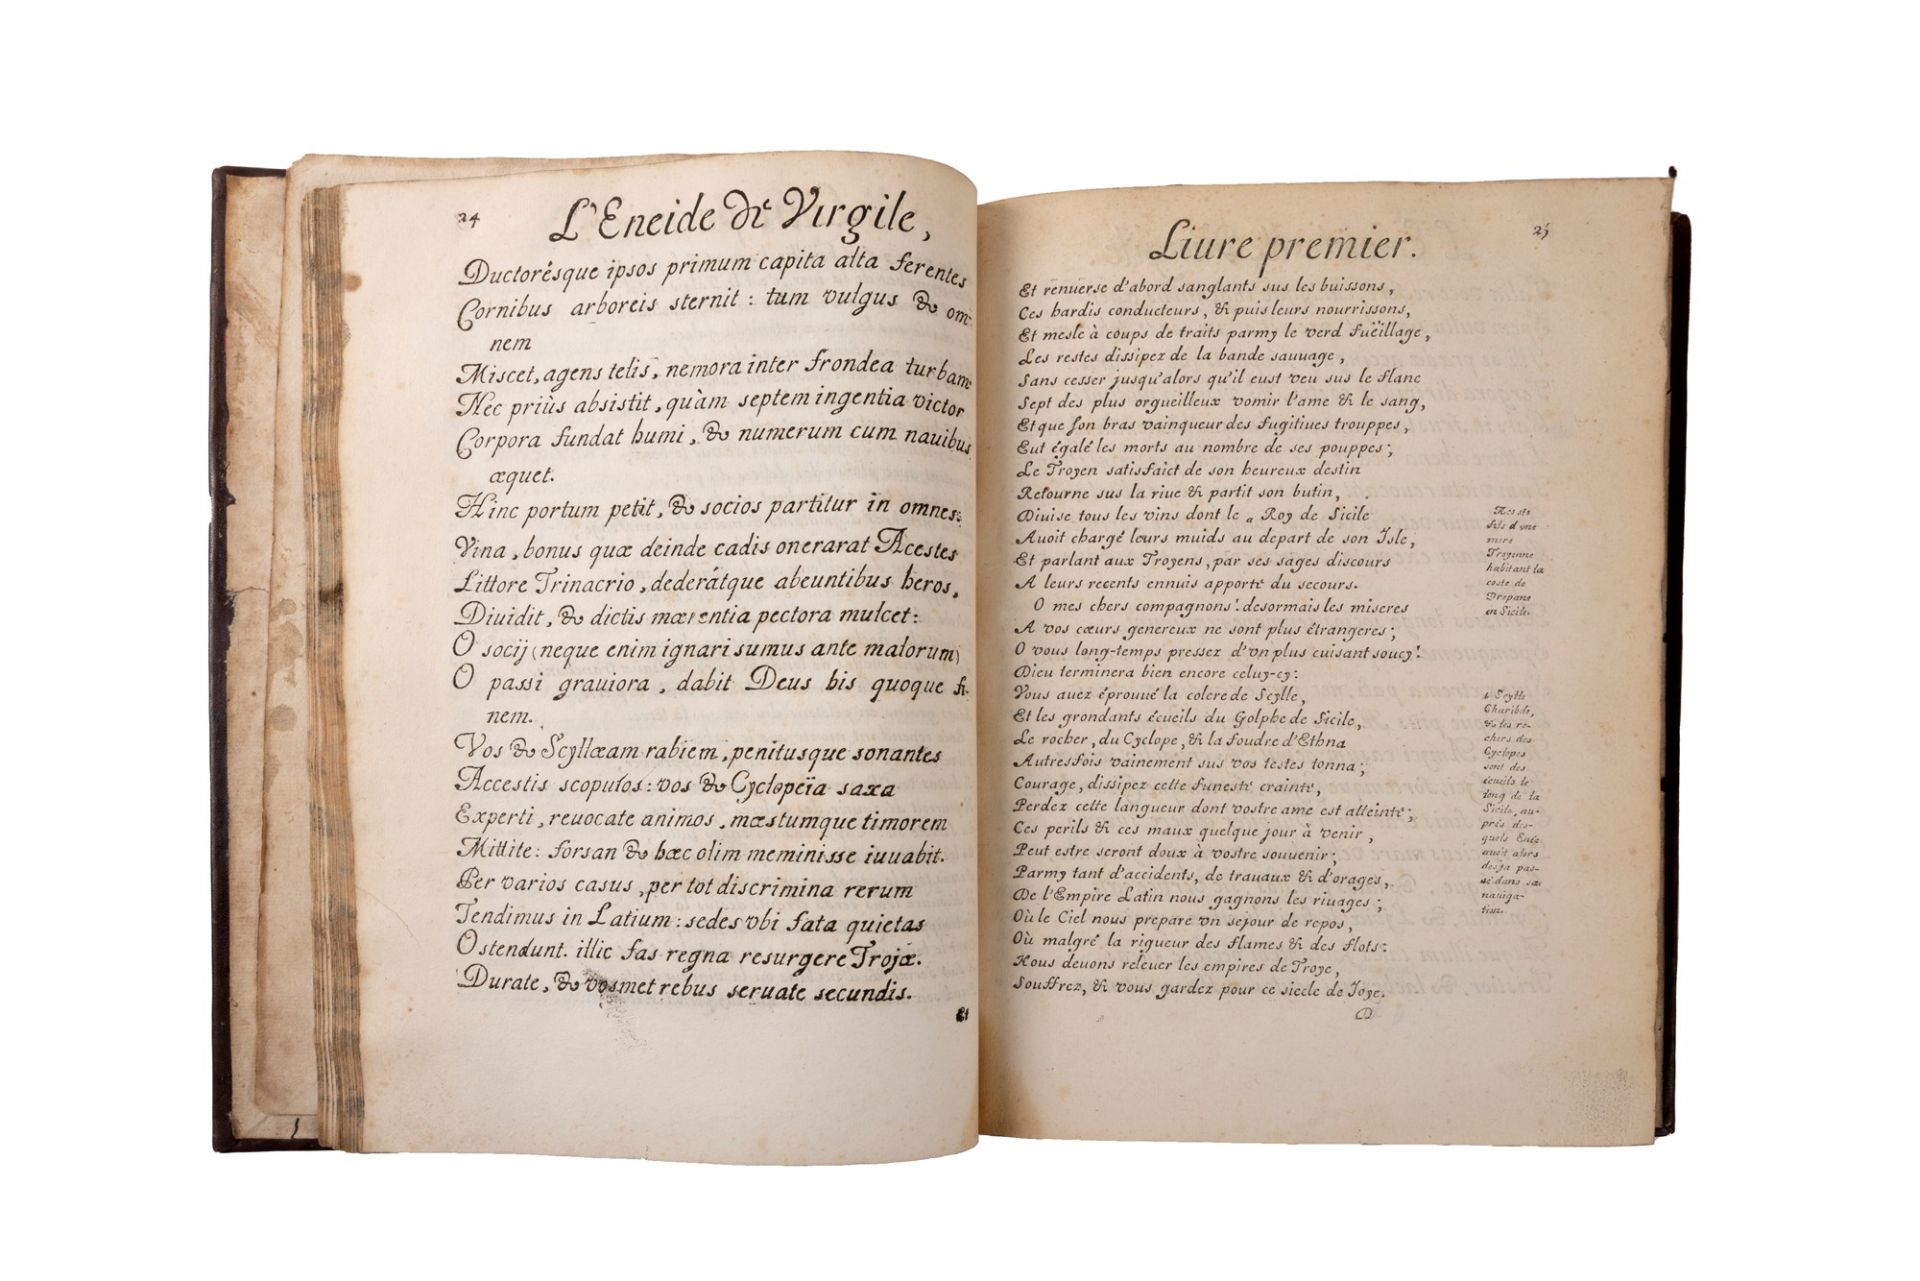 24
L'Eneide de Virgile,
Ductorésque ipsos primum capita alta ferentes
Cornibus arboreis sternit : tum vulgus & om-
nem
Miscet, agens telis, nemora inter frondea turbam:
Nec priùs absistit, quàm septem ingentia victor
Corpora fundat humi, & numerum cum nauibus
æquet.
Hinc portum petit, & socios partitur in omnes:
Vina, bonus quæ deinde cadis onerarat Acestes
Littore Trinacrio, dederátque abeuntibus heros,
Diuidit, & dictis mærentia pectora mulcet:
O socij (neque enim ignari sumus ante malorum)
O passi grauiora, dabit Deus his quoque fi-
nem.
Vos & Scyllæam rabiem, penitusque sonantes
Accestis scopulos: vos & Cyclopeïa saxa
Experti, reuocate animos, mæstumque timorem
Mittite: forsan & hæc olim meminisse iuuabit.
Per varios casus, per tot discrimina rerum
Tendimus in Latium: sedes vbi fata quietas
Ostendunt. illic fas regna resurgere Trojæ.
Durate, & vosmet rebus seruate secundis.
Et
25
Liure premier.
Et renuerse d'abord sanglants sus les buissons,
Ces hardis conducteurs, & puis leurs nourrissons,
Et mesle à coups de traits parmy le verd fuëillage,
Les restes dissipez de la bande sauuage,
Sans cesser jusqu'alors qu'il eust veu sus le flanc
Sept des plus orgueilleux vomir l'ame & le sang,
Et que son bras vainqueur des fugitiues trouppes,
Eut égalé les morts au nombre de ses pouppes;
Le Troyen satisfaict de son heureux destin
Retourne sus la riue & partit son butin,
Diuise tous les vins dont le a Roy de Sicile
Auoit chargé leurs muids au depart de son Isle,
Et parlant aux Troyens, par ses sages discours
A leurs recents ennuis apporte du secours.
O mes chers compagnons! desormais les miseres
A vos cœurs genereux ne sont plus étrangeres;
O vous long-temps pressez d'vn plus cuisant soucy!
Dieu terminera bien encore celuy-cy:
Vous auez éprouué la colere de Scylle,
Et les grondants écueils du Golphe de Sicile,
Le rocher, du Cyclope, & la foudre d'Ethna
Autresfois vainement sus vos testes tonna;
Courage, dissipez cette funeste crainte,
Perdez cette langueur dont vostre ame est atteinte;
Ces perils & ces maux quelque jour à venir,
Peut estre seront doux à vostre souuenir;
Parmy tant d'accidents, de trauaux & d'orages,
De l'Empire Latin nous gagnons les riuages;
Où le Ciel nous prepare vn sejour de repos,
Où malgré la rigueur des flames & des flots:
Nous deuons releuer les empires de Troye,
Souffrez, & vous gardez pour ce siecle de Joye.
D
Aceste
fils d'vne
mere
Troyenne
habitant la
coste de
Drepane
en Sicile.
Scylle
Charibde,
& les ro-
chers des
Cyclopes
sont des
écueils le
long de la
Sicile, au-
prés des-
quels Enée
auoit alors
desja pas-
sé dans sa
nauiga-
tion.